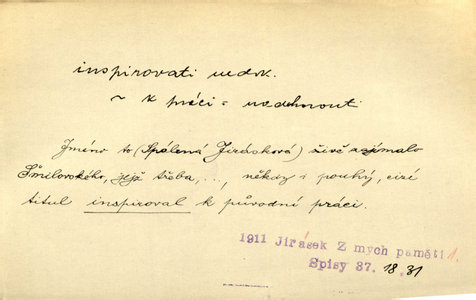 inspirovati nedok.
~ k práci = nadchnouti
Jméno to (Spálená Jirásková) živě zajímalo
Šmilovského, jejž třeba, ..., někdy i pouhý, cizí
titul inspiroval k původní práci.
1911 Jirásek Z mych paměti 1.
Spisy 37. 18 31